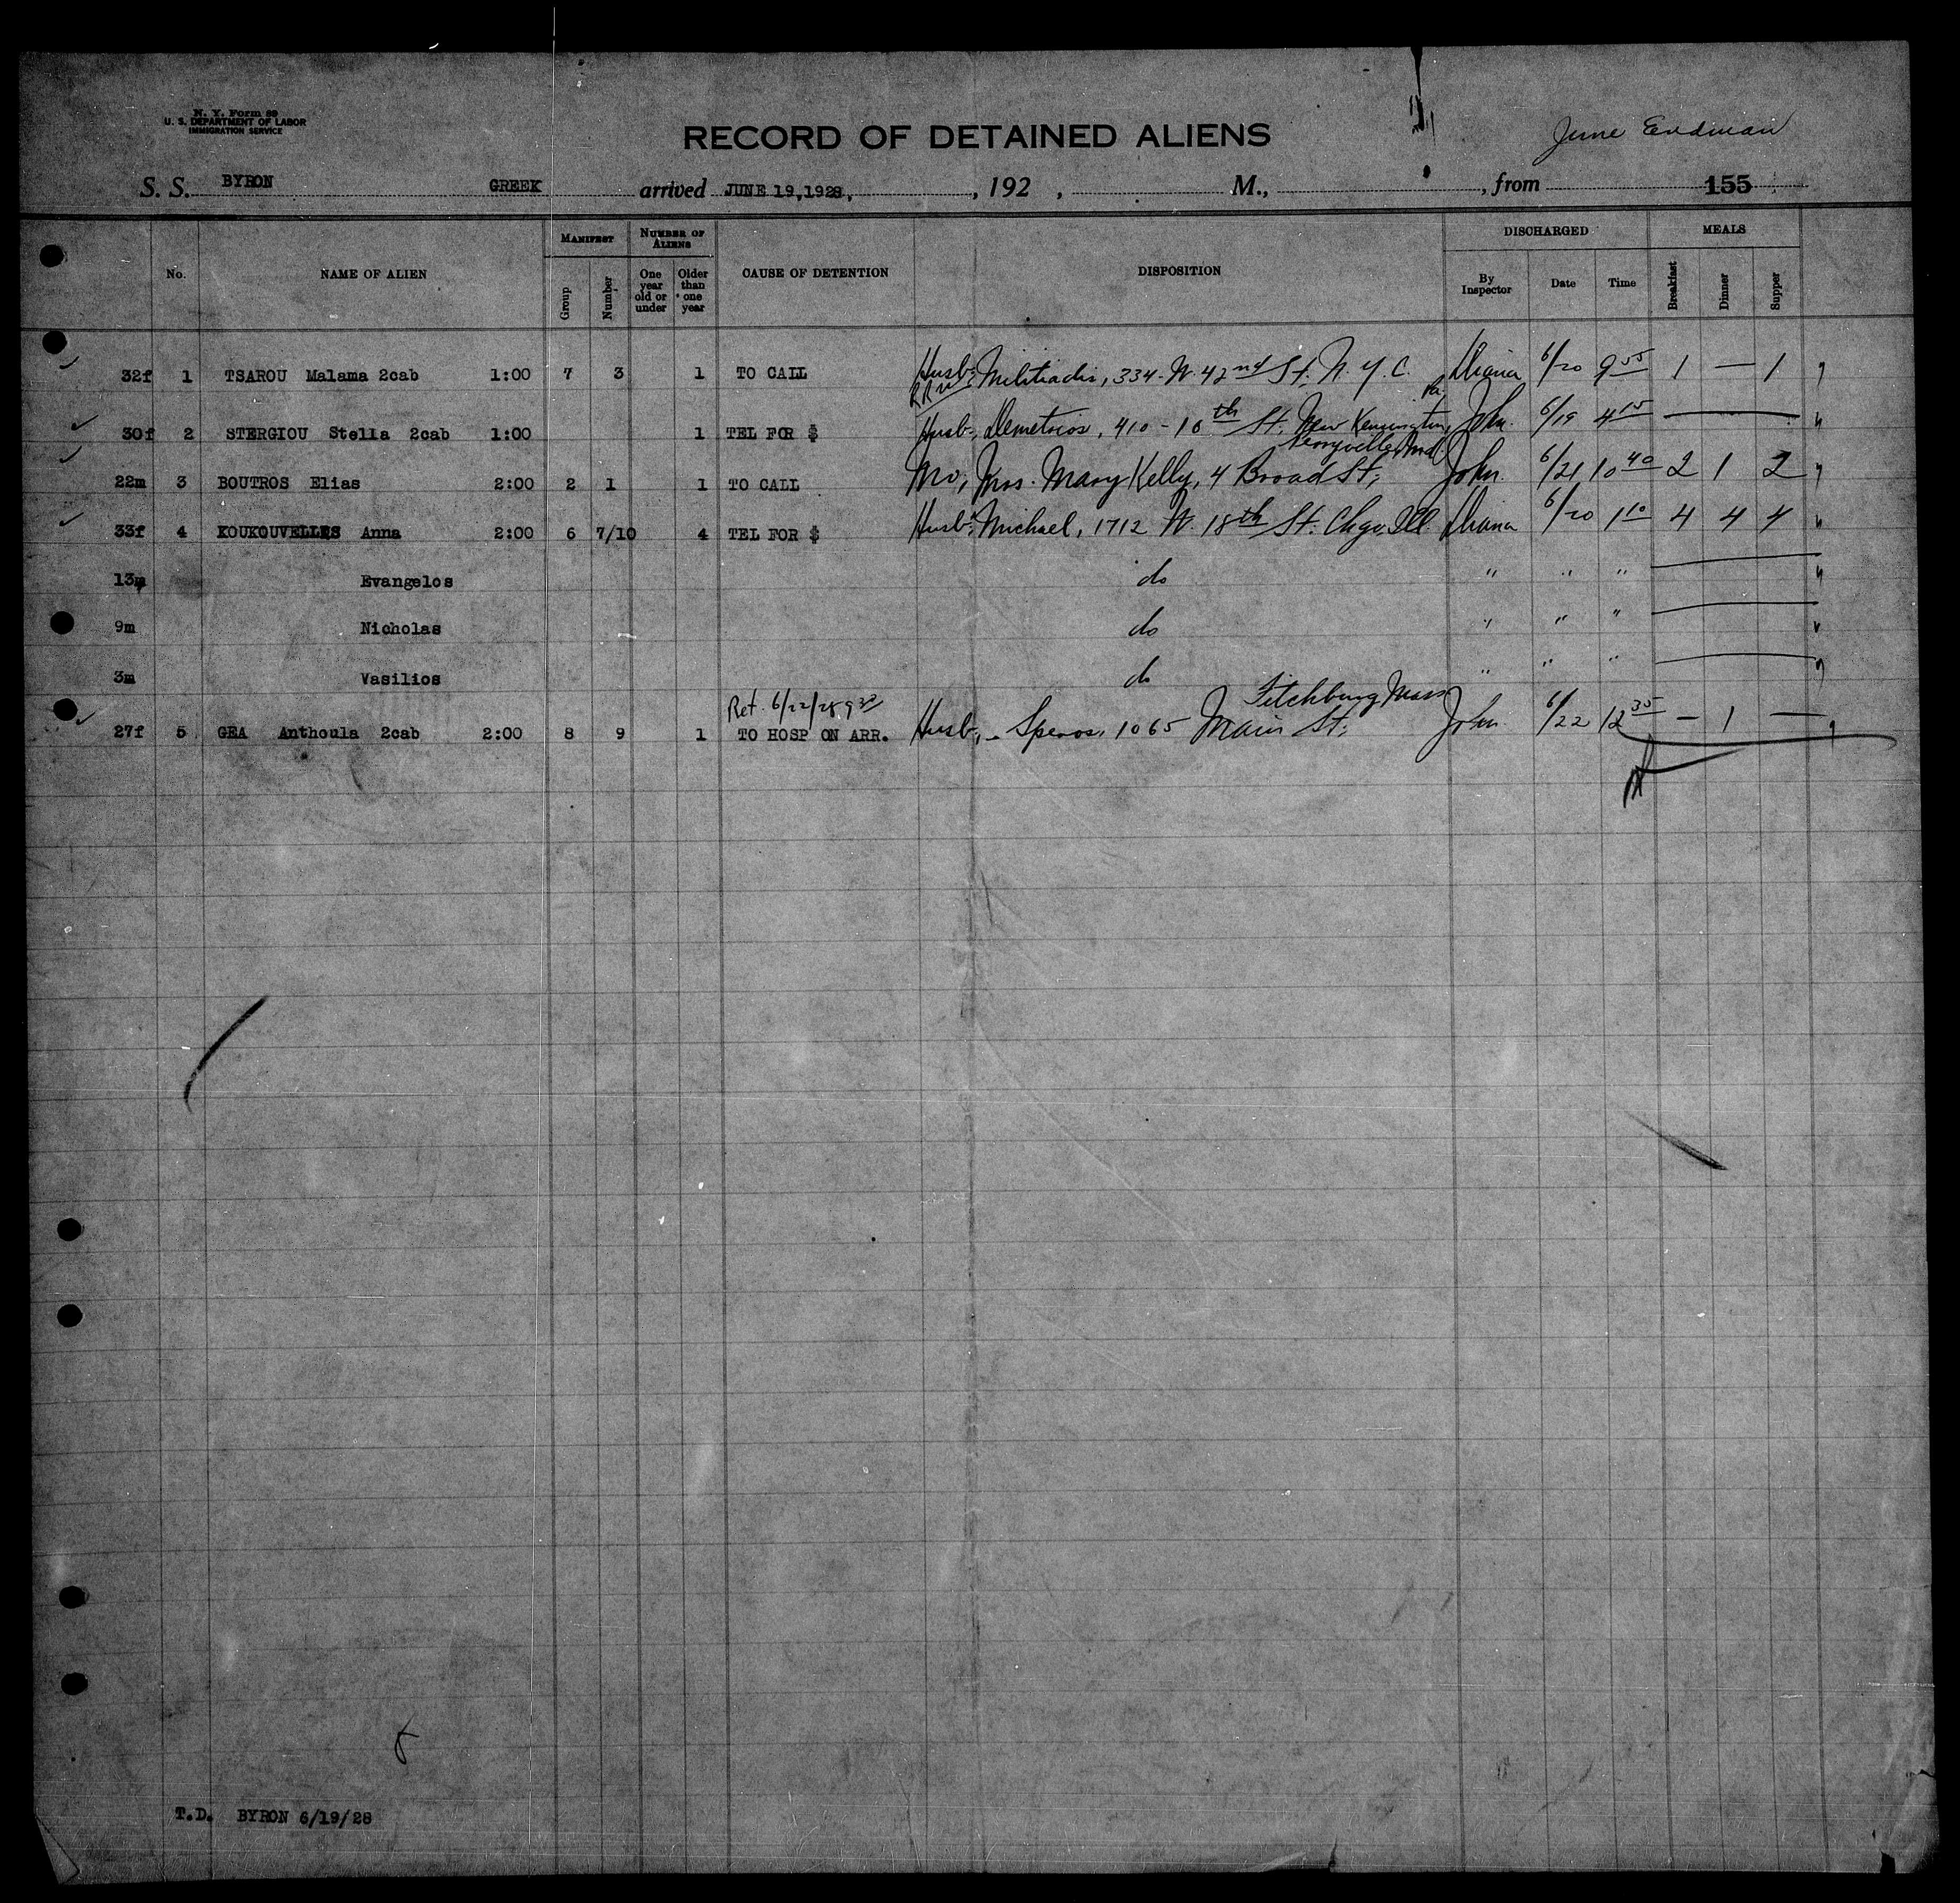 N. Y. Form 89
U. S. DEPARTMENT OF LABOR
IMMIGRATION SERVICE
RECORD OF DETAINED ALIENS
June
S. S. BYRON GREEK arrived JUNE 19,1928, , 192 , M., , from 155
No. NAME OF ALIEN MANIFEST Group Number NUMBER OF ALIENS One year old or under Older than one year CAUSE OF DETENTION DISPOSITION DISCHARGED By Inspector Date Time MEALS Breakfast Dinner Supper
32f 1 TSAROU Malama 2cab 1:00 7 3 1 TO CALL Husb; Miltiadis, 334-W. 42nd St. N.Y.C. 6/20 9 55 1 — 1
Pa,
30f 2 STERGIOU Stella 2cab 1:00 1 TEL FOR $ Husb; Demetrios, 410-10th St, New Kensington, John. 6/19 4 15 —
Perryville, Md
22m 3 BOUTROS Elias 2:00 2 1 1 TO CALL Mo, Mrs. Mary Kelly, 4 Broad St, John. 6/21 10 40 2 1 2
33f 4 KOUKOUVELLES Anna 2:00 6 7/10 4 TEL FOR $ Husb; Michael, 1712 W. 18th St. Chgo, Ill. 6/20 1 10 4 4 4
13m Evangelos do " " " —
9m Nicholas do " " " —
3m Vasilios do " " " —
Ret. 6/22/28 9 30 Fitchburg Mass
27f 5 GEA Anthoula 2cab 2:00 8 9 1 TO HOSP ON ARR. Husb, - Speros, 1065 Main St, John 6/22 12 35 — 1 —
T.D. BYRON 6/19/28